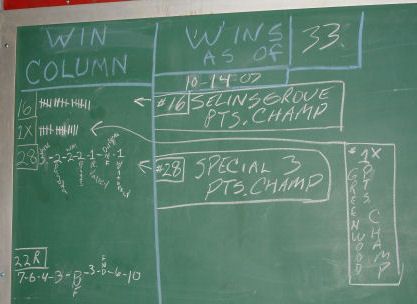 WIN
COLUMN
WINS
AS OF
33
10-14-07
16
#16 SELINSGROVE
PTS. CHAMP
1X
28
-2-2-1-
-1
#28 SPECIAL 3
PTS. CHAMP
#1X
GREENWOOD
PTS CHAMP
22R
7-6-4-3-DNF-3-DNF-6-10